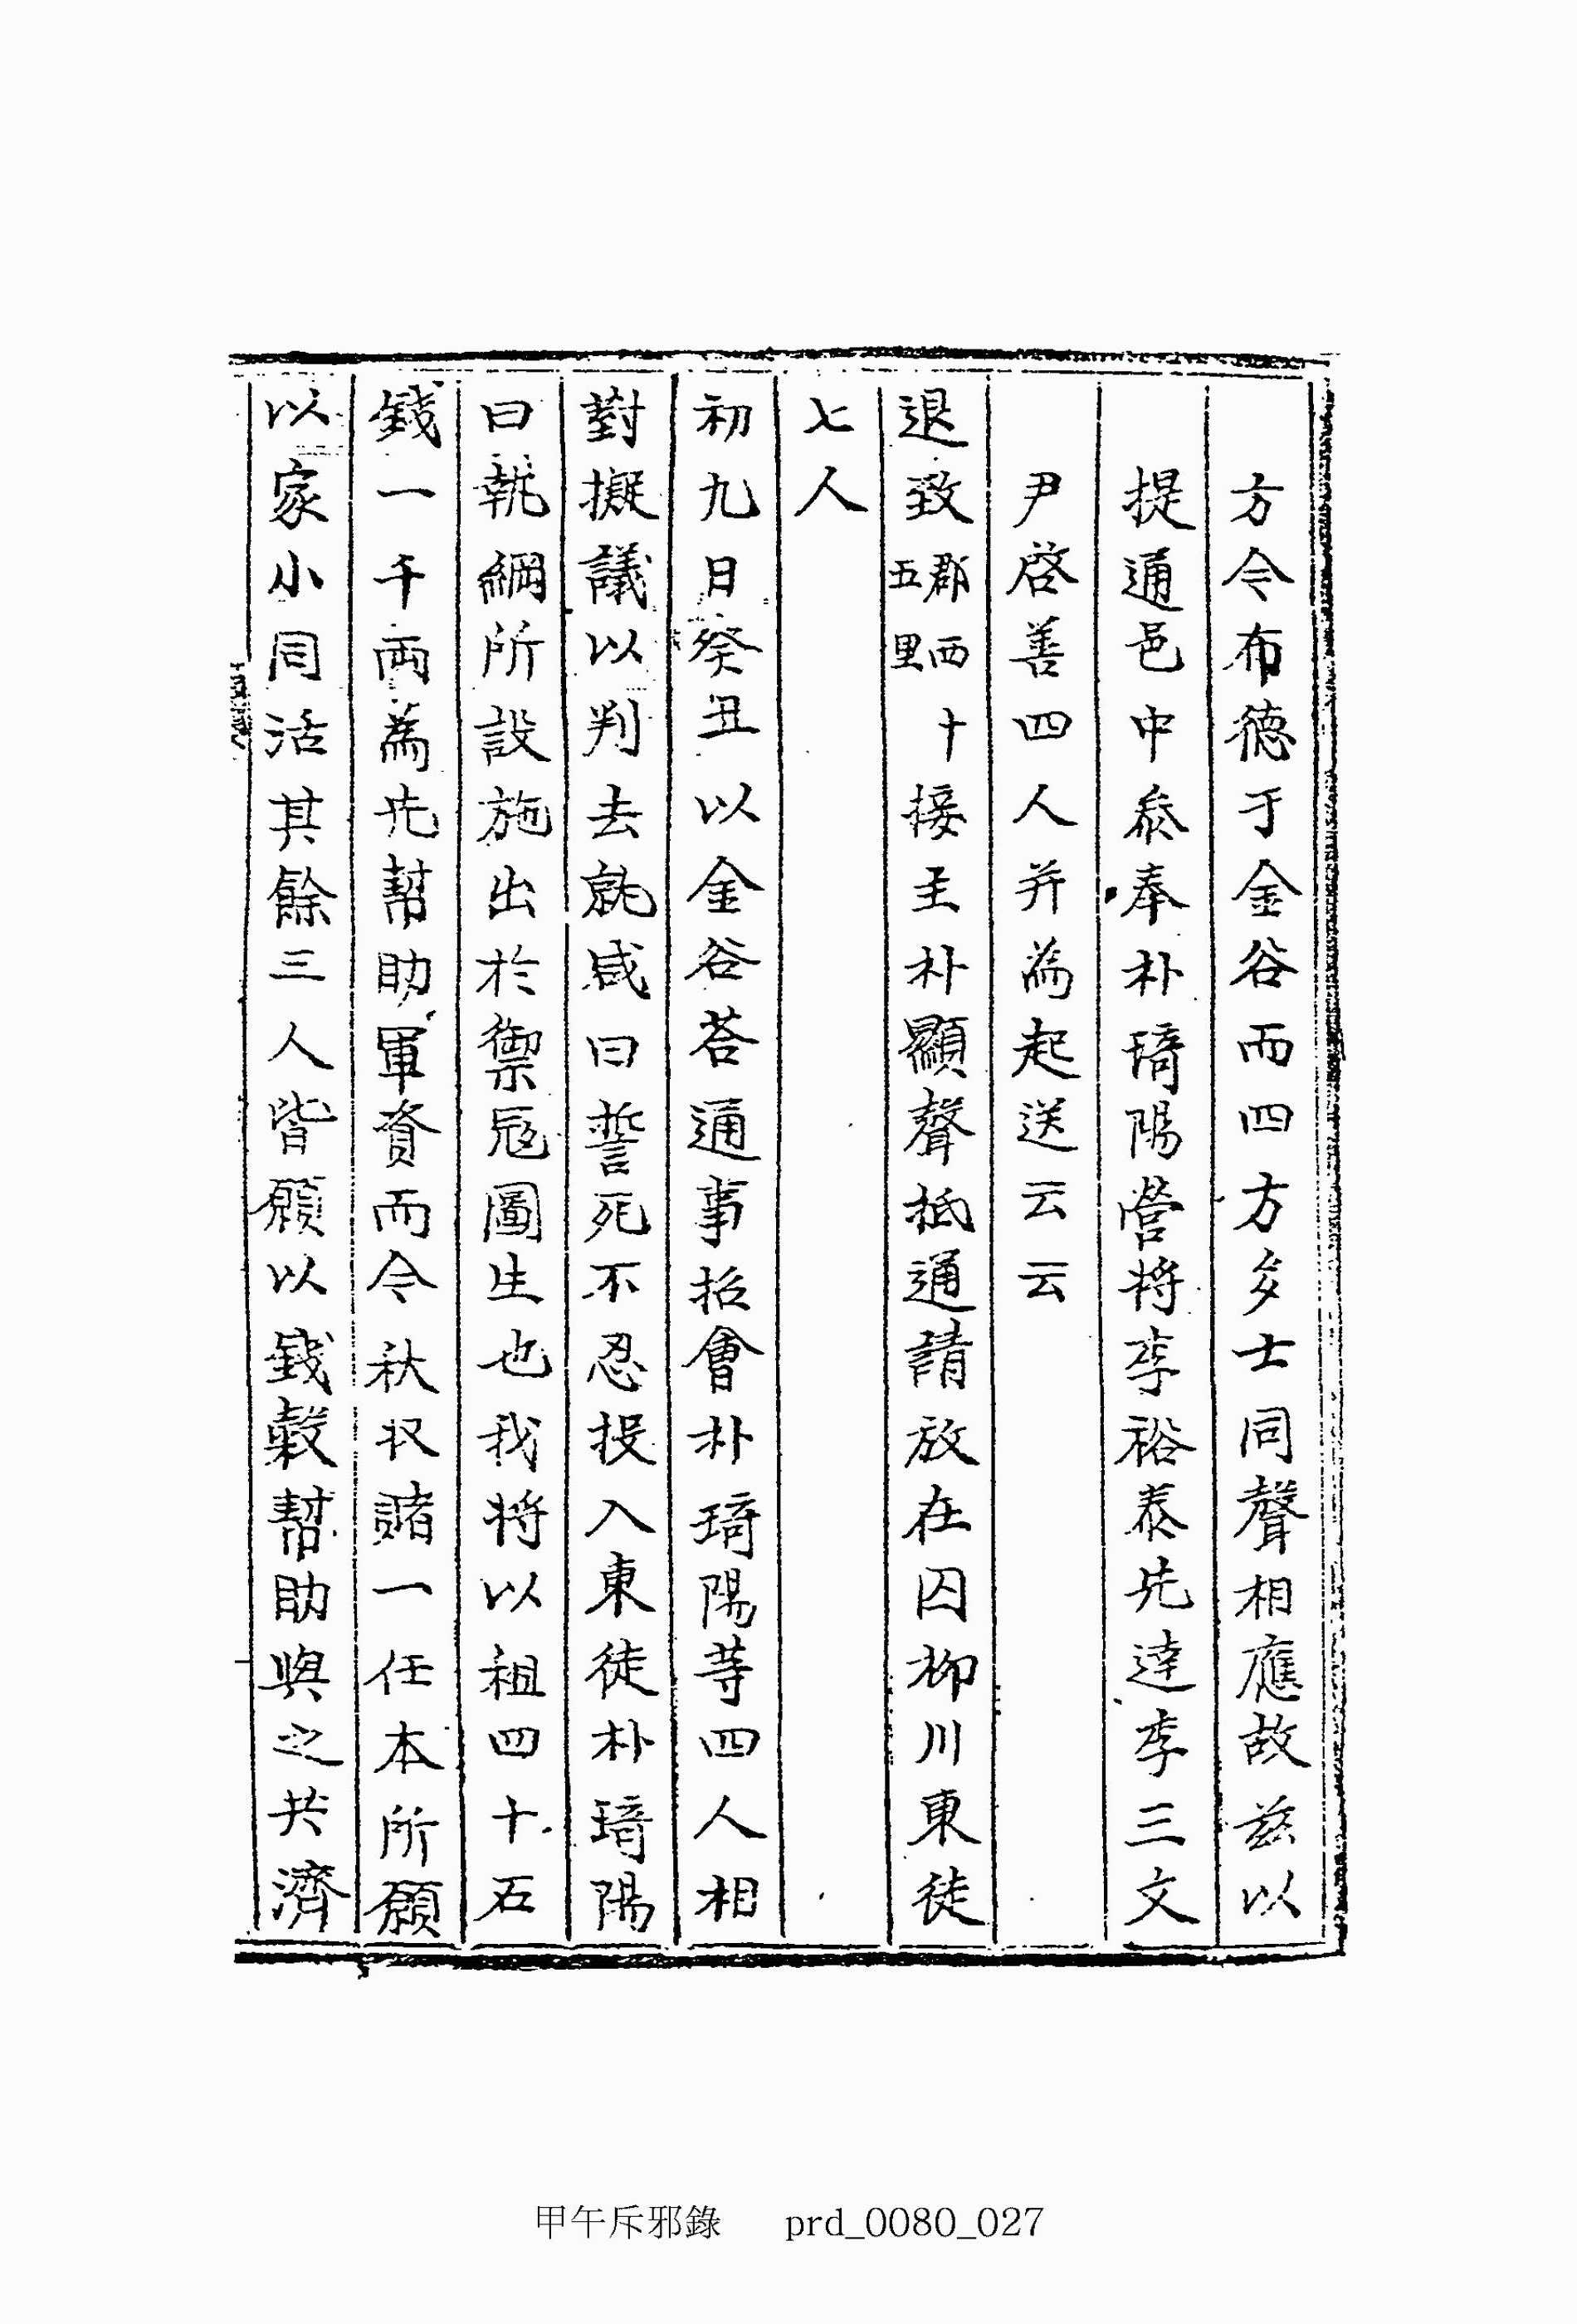 方令布德于金谷而四方多士同聲相應故玆以
提通邑中叅奉朴琦陽營將李裕泰先達李三文
尹啓善四人并爲起送云云
退致郡西五里十接主朴顯聲抵通請放在囚柳川東徒
七人
初九日癸丑以金谷荅通事招會朴琦陽等四人相
對擬議以判去就咸曰誓死不忍投入東徒朴琦陽
曰執綱所設施出於禦寇圖生也我將以租四十石
錢一千兩爲先幇助軍資而令秋収諸一任本所願
以家小同活其餘三人皆願以錢穀幇助與之共濟
甲午斥邪錄 prd_0080_027